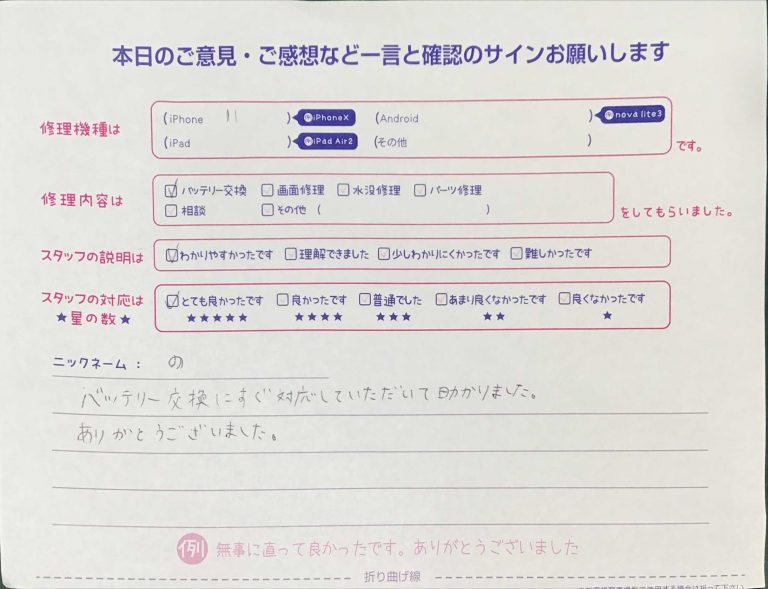 本日のご意見・ご感想など一言と確認のサインお願いします
修理機種は
(iPhone 11 ) iPhoneX (Android ) nova lite3
(iPad ) iPad Air2 (その他 )
です。
修理内容は
バッテリー交換 画面修理 水没修理 パーツ修理
相談 その他 ( )
をしてもらいました。
スタッフの説明は わかりやすかったです 理解できました 少しわかりにくかったです 難しかったです
スタッフの対応は とても良かったです 良かったです 普通でした あまり良くなかったです 良くなかったです
★星の数★ ★★★★★ ★★★★ ★★★ ★★ ★
ニックネーム: の
バッテリー交換にすぐ対応していただいて助かりました。
ありがとうございました。
例 無事に直って良かったです。ありがとうございました
折り曲げ線